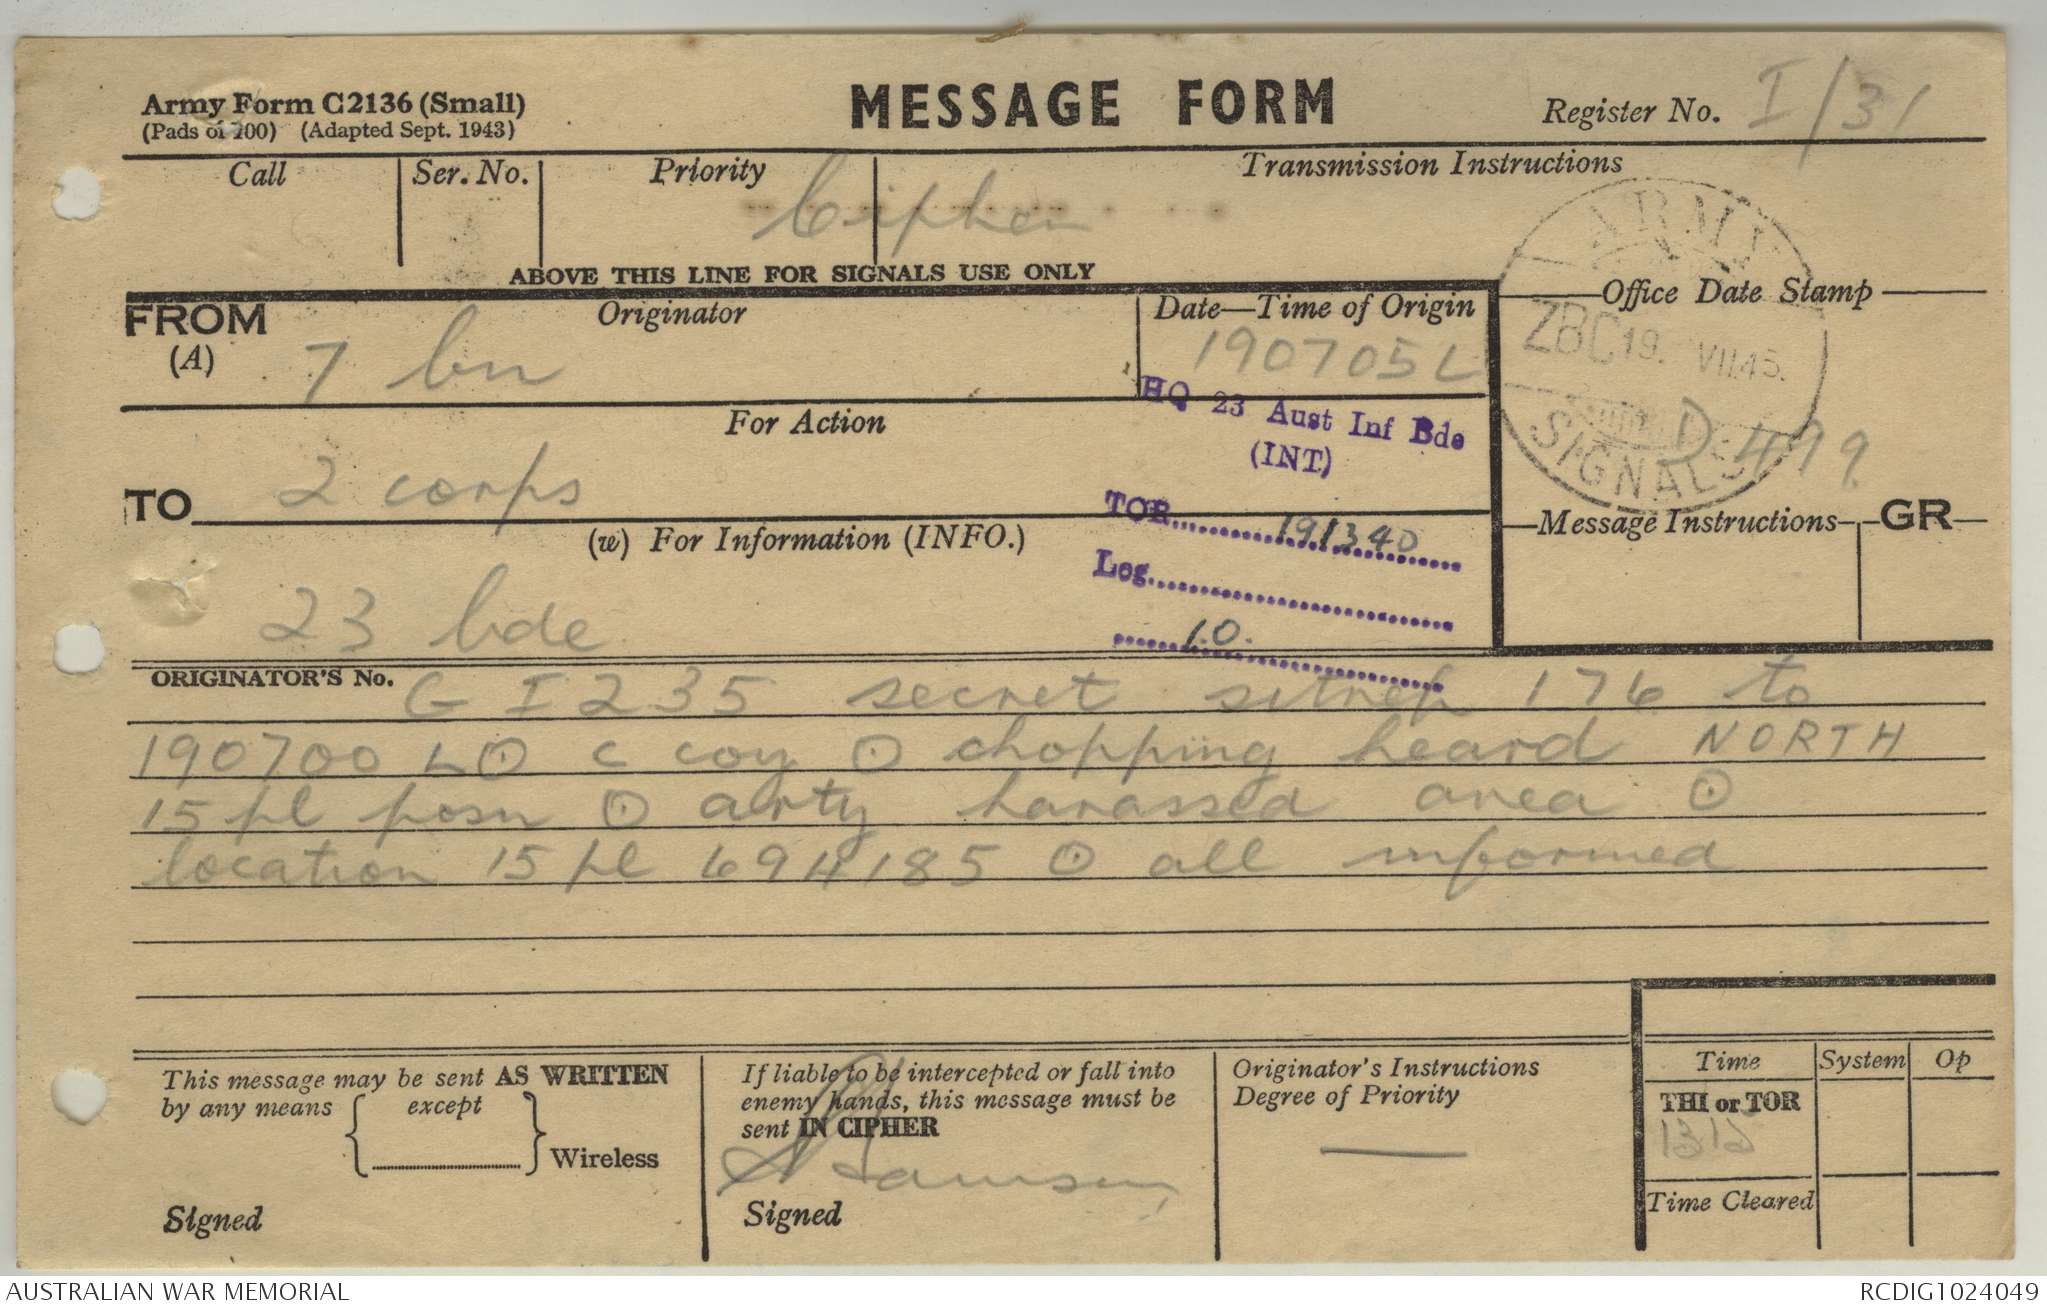 Army Form C2136 (Small)
(Pads of 100) (Adapted Sept. 1943)
MESSAGE FORM
Register No. I/31
Call
Ser. No.
Priority
Transmission Instructions
Cipher
ABOVE THIS LINE FOR SIGNALS USE ONLY
FROM
(A)
Originator
7 bn
Date—Time of Origin
190705L
Office Date Stamp
ARMY
ZBC 19. VII.45.
SIGNALS
D 499.
For Action
TO
2 corps
(w) For Information (INFO.)
23 bde
HQ 23 Aust Inf Bde
(INT)
TOR 191340
Log
I.O.
Message Instructions
GR
ORIGINATOR'S No.
G I 235 secret sitrep 176 to
190700 L ⊙ C coy ⊙ chopping heard NORTH
15 pl posn ⊙ arty harassed area ⊙
location 15 pl 694185 ⊙ all informed
This message may be sent AS WRITTEN
by any means { except } Wireless
Signed
If liable to be intercepted or fall into
enemy hands, this message must be
sent IN CIPHER
Signed
Originator's Instructions
Degree of Priority
—
Time
System
Op
THI or TOR
Time Cleared
AUSTRALIAN WAR MEMORIAL
RCDIG1024049